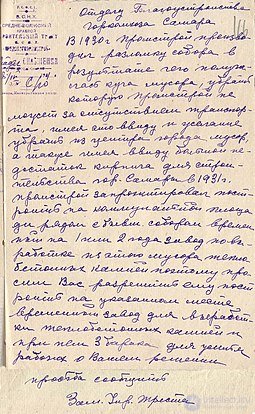 Р.С.Ф.С.Р.
В.С.Н.Х.
СНАБЖЕНИЯ
Отделу Благоустройства
Горкомхоза Самара
166
В 1930 г. Промстрой произво-
дил разломку собора в
результате чего получи-
лась куча мусора, убрать
которую Промстрой не
может за отсутствием транспор-
та, имея это ввиду и желание
убрать из центра города мусор,
а также имея ввиду большой не-
достаток кирпича для строи-
тельства гор. Самары в 1931 г.
Промстрой запроектировал пост-
роить на коммунальной площа-
ди рядом с бывш. собором времен-
ный на 1 или 2 года завод по вы-
работке из этого мусора тепло-
бетонных камней поэтому про-
сим Вас разрешить ему пост-
роить на указанном месте
временный завод для выработ-
ки теплобетонных камней и
при нем 3 барака для
рабочих о Вашем решении
просьба сообщить
Зам. Упр. Треста